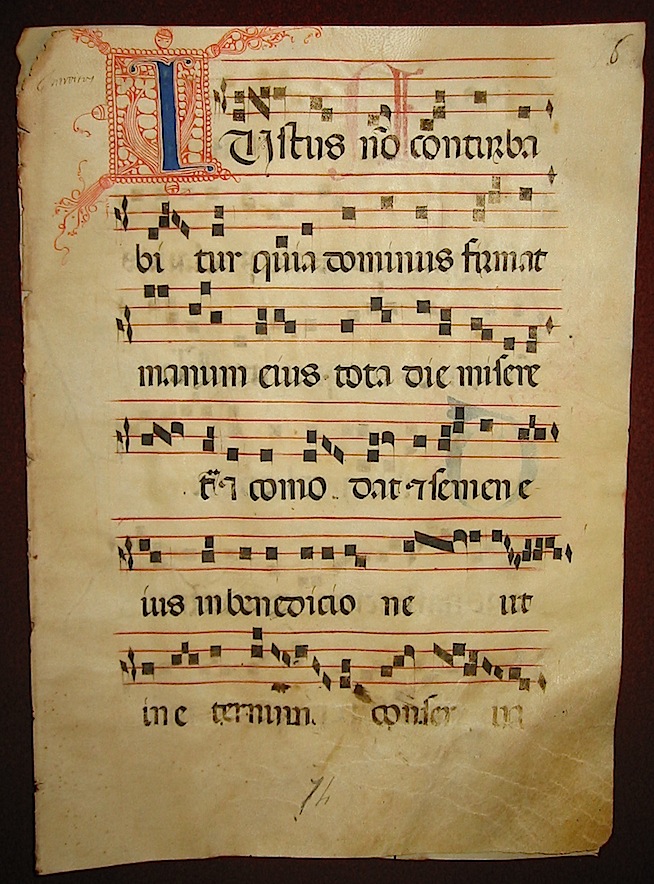 6
IUstus nō conturba
bi tur quia dominus firmat
manum eius tota die misere
t̄ ⁊ como dat ⁊ semen e
ius in benedicio ne ut
in e ternum conser ua
74